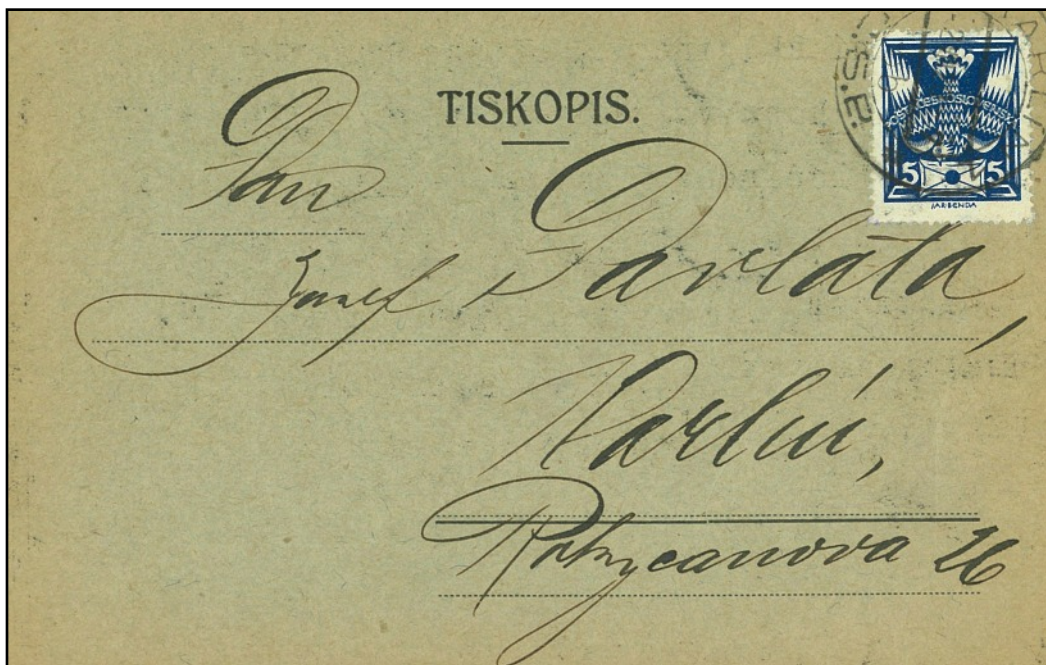 TISKOPIS.
Pan
Josef Pavlata,
Karlín,
Rokycanova 26
POŠTA ČESKOSLOVENSKÁ
5 5
JAR. BENDA